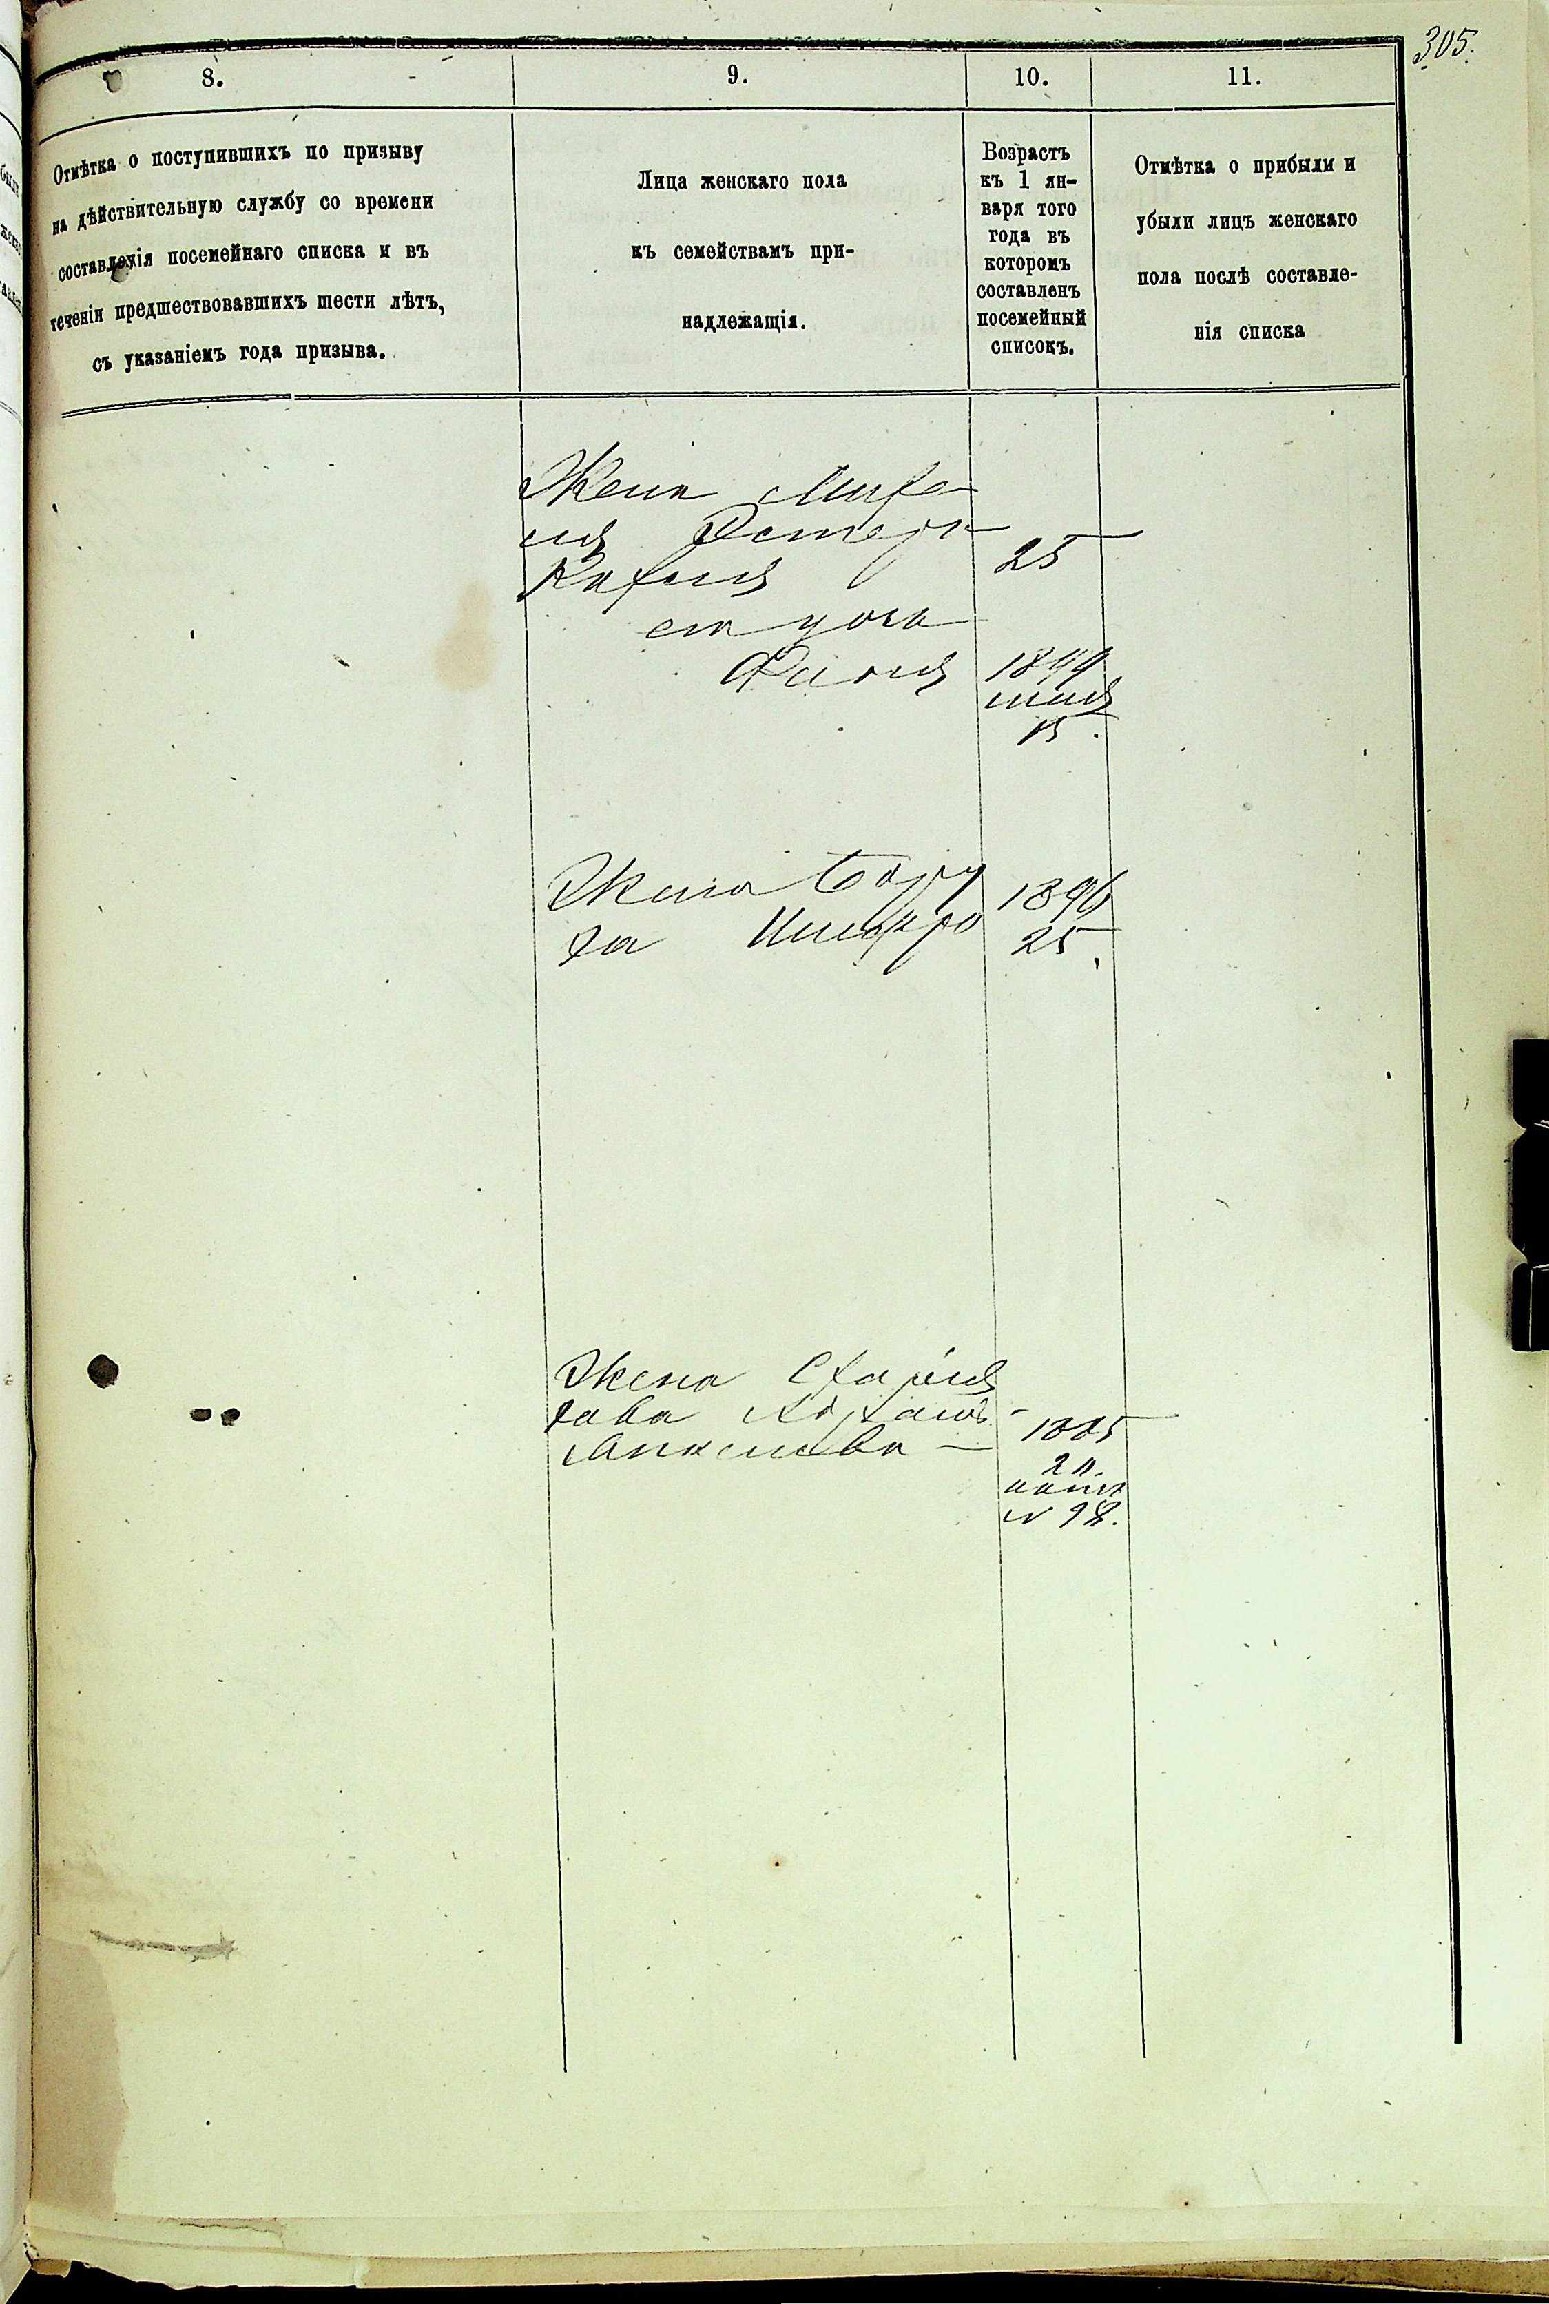 305.
8.
9.
10.
11.
Отмѣтка о поступившихъ по призыву
на дѣйствительную службу со времени
составленія посемейнаго списка и въ
теченіи предшествовавшихъ шести лѣтъ,
съ указаніемъ года призыва.
Лица женскаго пола
къ семействамъ при-
надлежащія.
Возрастъ
къ 1 ян-
варя того
года въ
которомъ
составленъ
посемейный
списокъ.
Отмѣтка о прибыли и
убыли лицъ женскаго
пола послѣ составле-
нія списка
Жена Михе-
ля Эстеръ
Рахиля 25
его дочь
1899
мая
15.
Жена Бору
ха 1896
25.
Жена
1885
2 л.
№ 98.